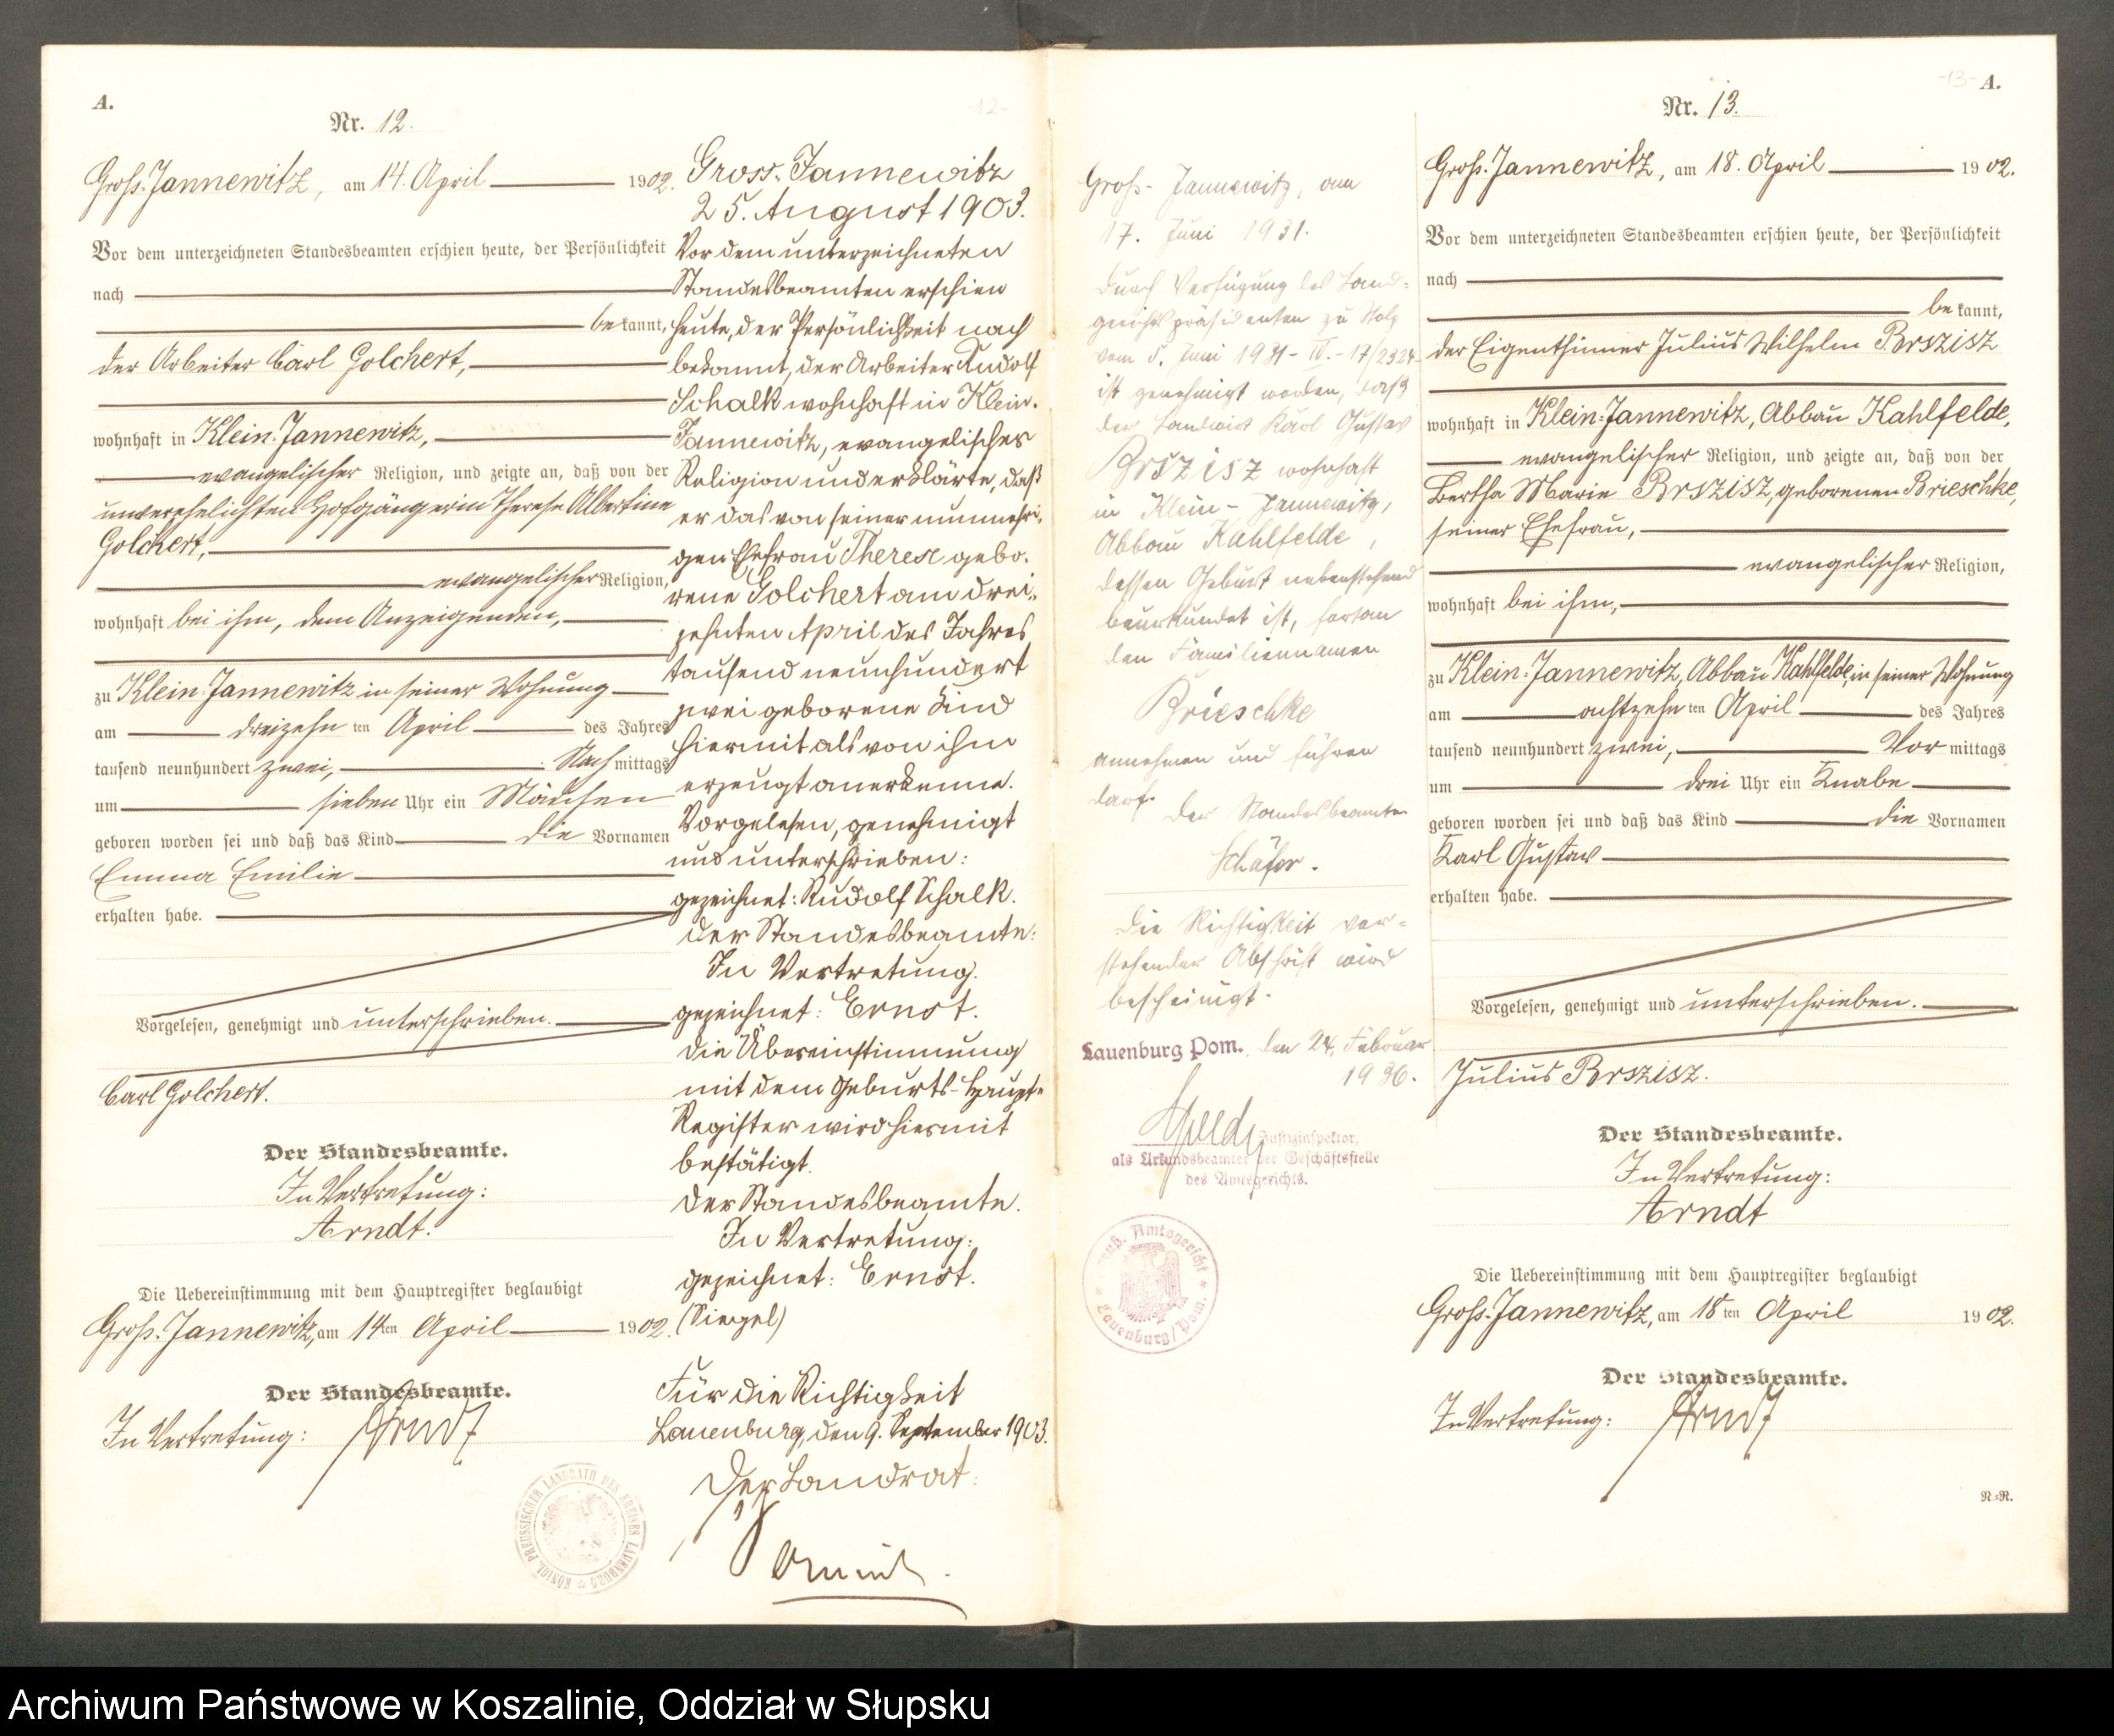 A.
Nr. 12.
Groß-Jannewitz, am 14. April 1902.
Vor dem unterzeichneten Standesbeamten erschien heute, der Persönlichkeit
nach
bekannt,
der Arbeiter Carl Golchert,
wohnhaft in Klein-Jannewitz,
evangelischer Religion, und zeigte an, daß von der
unverehelichten Hofgängerin Therese Albertine
Golchert,
evangelischer Religion,
wohnhaft bei ihm, dem Anzeigenden,
zu Klein-Jannewitz in seiner Wohnung
am dreizehnten April des Jahres
tausend neunhundert zwei, Nachmittags
um sieben Uhr ein Mädchen
geboren worden sei und daß das Kind die Vornamen
Emma Emilie
erhalten habe.
Vorgelesen, genehmigt und unterschrieben.
Carl Golchert.
Der Standesbeamte.
In Vertretung:
Arndt.
Die Uebereinstimmung mit dem Hauptregister beglaubigt
Groß-Jannewitz, am 14ten April 1902.
Der Standesbeamte.
In Vertretung: Arndt
KÖNIGL. PREUSSISCHER LANDRATH DES KREISES LAUENBURG
-12-
Gross-Jannewitz
25. August 1903.
Vor dem unterzeichneten
Standesbeamten erschien
heute, der Persönlichkeit nach
bekannt, der Arbeiter Rudolf
Schalk wohnhaft in Klein-
Jannewitz, evangelischer
Religion und erklärte, daß
er das von seiner nunmehri-
gen Ehefrau Therese gebo-
rene Golchert am drei-
zehnten April des Jahres
tausend neunhundert
zwei geborene Kind
hiermit als von ihm
erzeugt anerkenne.
Vorgelesen, genehmigt
und unterschrieben:
gezeichnet: Rudolf Schalk.
Der Standesbeamte:
In Vertretung.
gezeichnet: Ernst.
Die Übereinstimmung
mit dem Geburts-Haupt-
Register wird hiermit
bestätigt.
Der Standesbeamte.
In Vertretung:
gezeichnet: Ernst.
(Siegel)
Für die Richtigkeit
Lauenburg, den 9. September 1903.
Der Landrat:
Groß-Jannewitz, am
17. Juni 1931.
Durch Verfügung des Land-
gerichtspräsidenten zu Stolp
vom 5. Juni 1931 - IV. - 17/2324
ist genehmigt worden, daß
der Landwirt Karl Gustav
Brszisz wohnhaft
in Klein-Jannewitz,
Abbau Kahlfelde,
dessen Geburt nebenstehend
beurkundet ist, fortan
den Familiennamen
Brieschke
annehmen und führen
darf.
Der Standesbeamte
Schäfer.
Die Richtigkeit vor-
stehender Abschrift wird
bescheinigt.
Lauenburg Pom., den 24. Februar
1936.
Justizinspektor,
als Urkundsbeamter der Geschäftsstelle
des Amtsgerichts.
Preuß. Amtsgericht * Lauenburg/Pom. *
-13- A.
Nr. 13.
Groß-Jannewitz, am 18. April 1902.
Vor dem unterzeichneten Standesbeamten erschien heute, der Persönlichkeit
nach
bekannt,
der Eigenthümer Julius Wilhelm Brszisz
wohnhaft in Klein-Jannewitz, Abbau Kahlfelde,
evangelischer Religion, und zeigte an, daß von der
Bertha Marie Brszisz, geborenen Brieschke,
seiner Ehefrau,
evangelischer Religion,
wohnhaft bei ihm,
zu Klein-Jannewitz, Abbau Kahlfelde, in seiner Wohnung
am achtzehnten April des Jahres
tausend neunhundert zwei, Vormittags
um drei Uhr ein Knabe
geboren worden sei und daß das Kind die Vornamen
Karl Gustav
erhalten habe.
Vorgelesen, genehmigt und unterschrieben.
Julius Brszisz.
Der Standesbeamte.
In Vertretung:
Arndt
Die Uebereinstimmung mit dem Hauptregister beglaubigt
Groß-Jannewitz, am 18ten April 1902.
Der Standesbeamte.
In Vertretung: Arndt
N=R.
Archiwum Państwowe w Koszalinie, Oddział w Słupsku